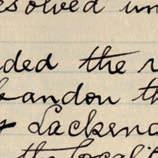 esolved un
ded the r
bandon th
y Lackend
the locali